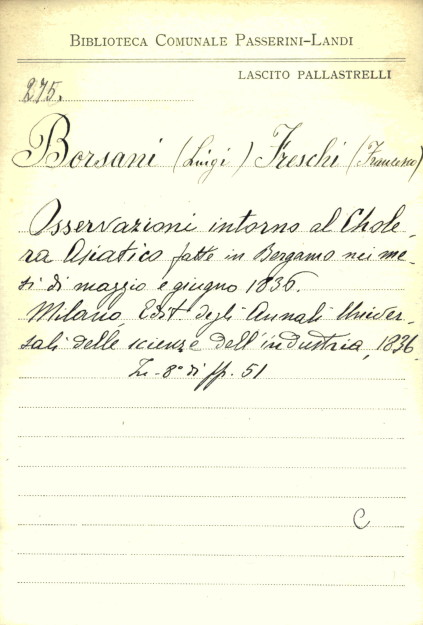 BIBLIOTECA COMUNALE PASSERINI-LANDI
LASCITO PALLASTRELLI
275.
Borsani (Luigi) Freschi (Francesco)
Osservazioni intorno al Chole-
ra Asiatico fatte in Bergamo nei me-
si di maggio e giugno 1836.
Milano, Edit degli Annali Univer-
sali delle scienze e dell'industria, 1836.
In-8° di pp. 51
C